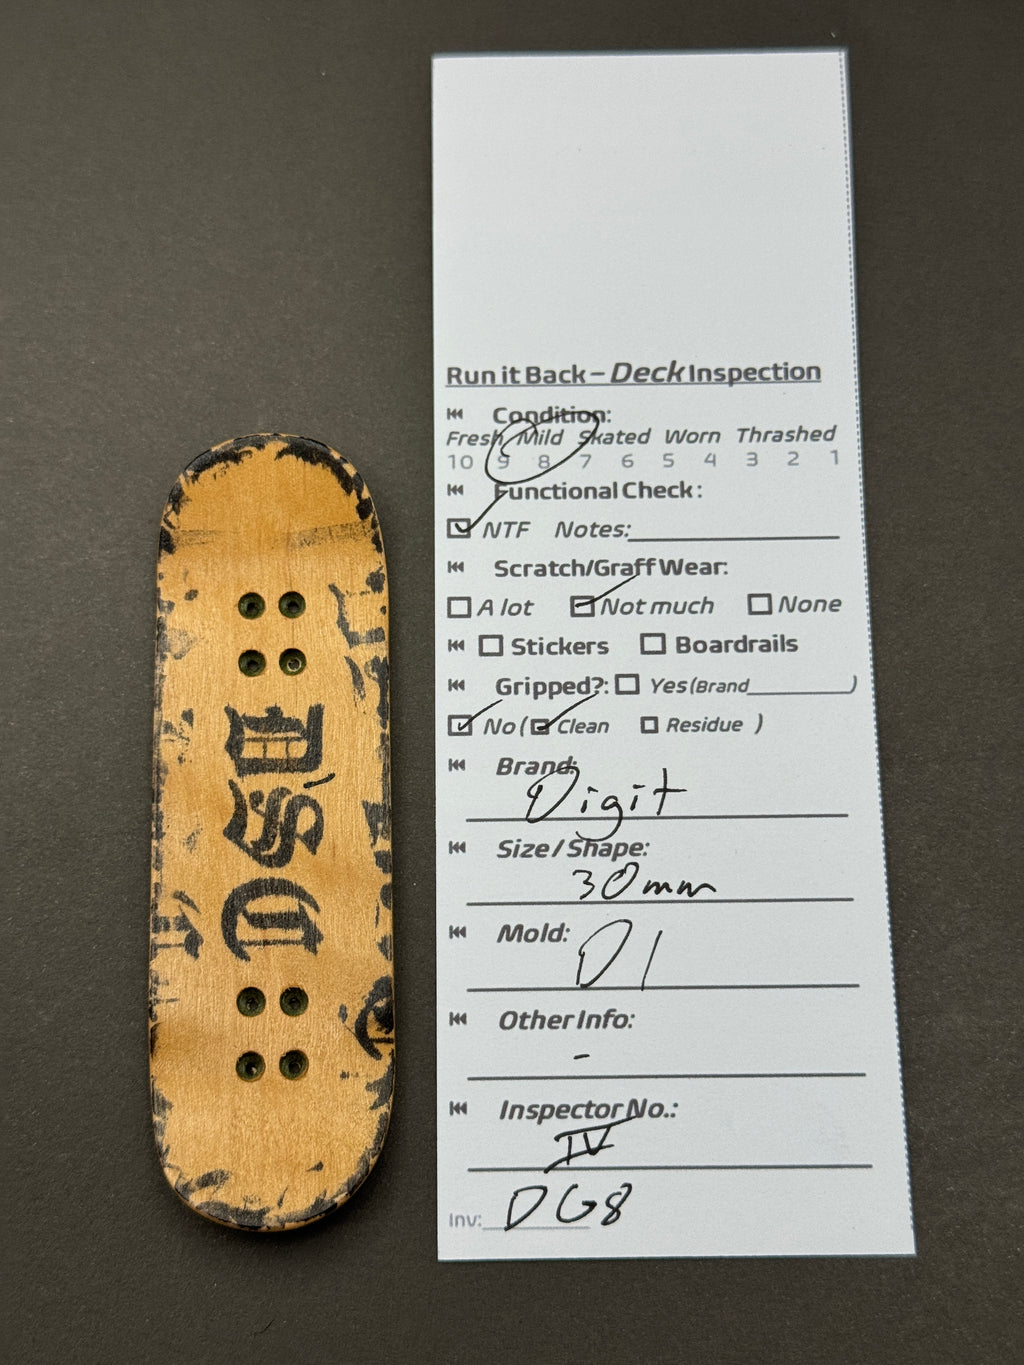 Run it Back – Deck Inspection
Condition:
Fresh Mild Skated Worn Thrashed
10 9 8 7 6 5 4 3 2 1
Functional Check:
NTF Notes:
Scratch/Graff Wear:
A lot Not much None
Stickers Boardrails
Gripped?: Yes (Brand )
No ( Clean Residue )
Brand:
Digit
Size / Shape:
30mm
Mold:
D1
Other Info:
-
Inspector No.:
IV
Inv: DG8